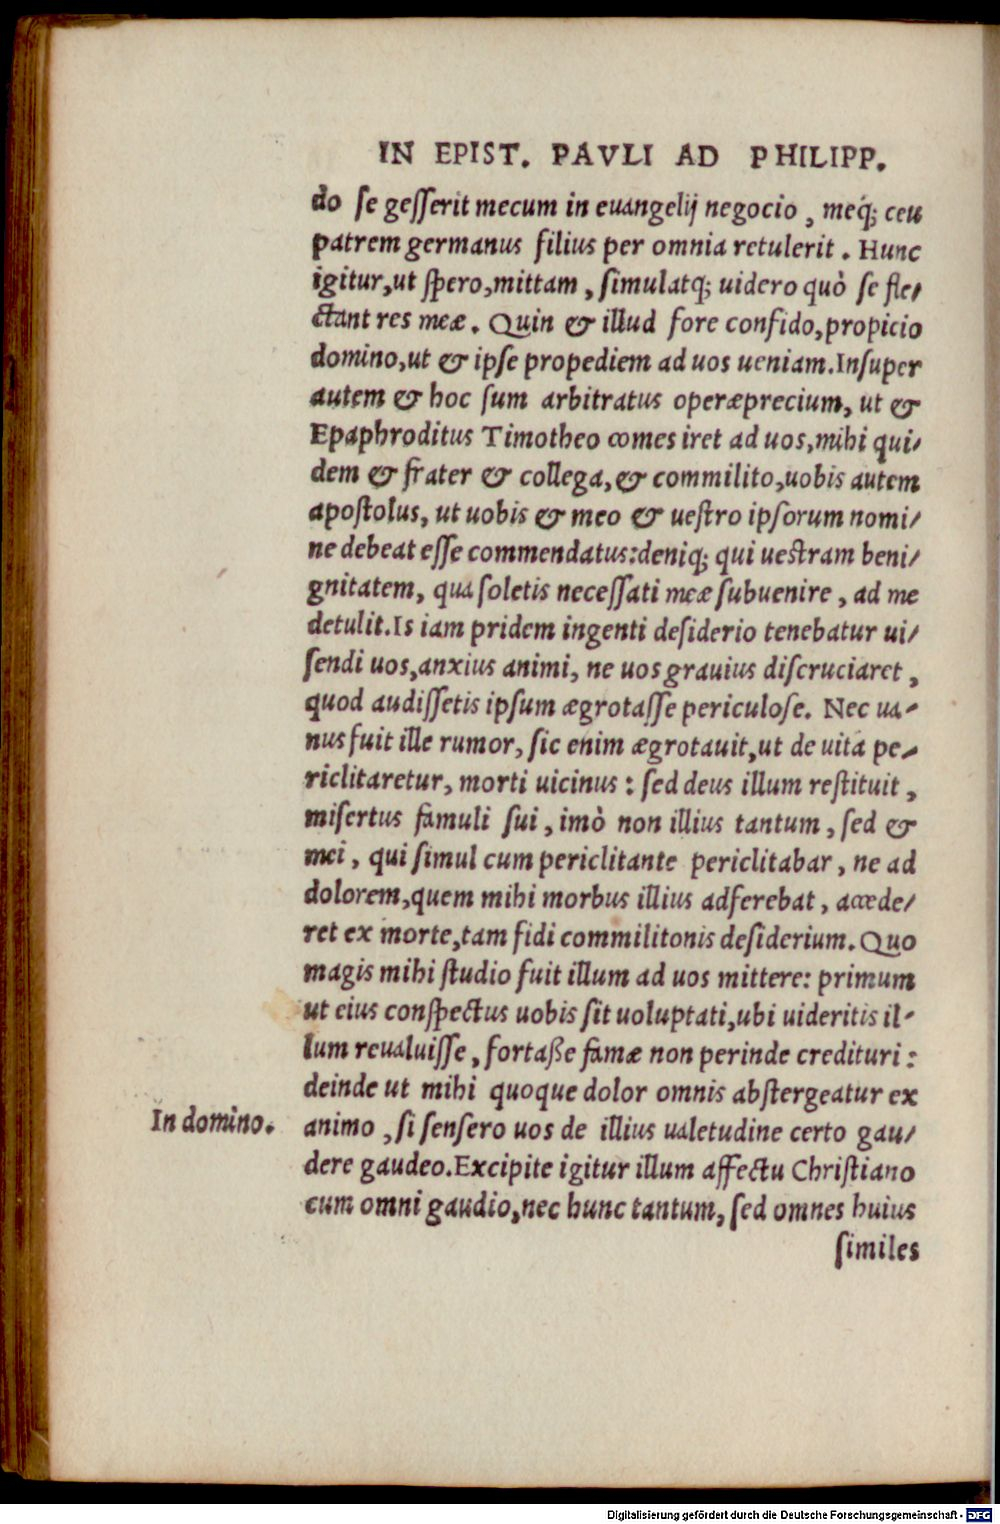 IN EPIST. PAVLI AD PHILIPP.
do ſe geſſerit mecum in euangelij negocio, meq́; ceu
patrem germanus filius per omnia retulerit. Hunc
igitur,ut ſpero,mittam, ſimulatq; uidero quò ſe fle⸗
ctant res meæ. Quin & illud fore confido,propicio
domino,ut & ipſe propediem ad uos ueniam.Inſuper
autem & hoc ſum arbitratus operæprecium, ut &
Epaphroditus Timotheo comes iret ad uos,mihi qui⸗
dem & frater & collega,& commilito,uobis autem
apoſtolus, ut uobis & meo & ueſtro ipſorum nomi⸗
ne debeat eſſe commendatus:deniq; qui ueſtram beni⸗
gnitatem, qua ſoletis neceſſati meæ ſubuenire, ad me
detulit.Is iam pridem ingenti deſiderio tenebatur ui⸗
ſendi uos,anxius animi, ne uos grauius diſcruciaret,
quod audiſſetis ipſum ægrotaſſe periculoſe. Nec ua⸗
nus fuit ille rumor, ſic enim ægrotauit,ut de uita pe⸗
riclitaretur, morti uicinus: ſed deus illum reſtituit,
miſertus famuli ſui, imò non illius tantum, ſed &
mei, qui ſimul cum periclitante periclitabar, ne ad
dolorem,quem mihi morbus illius adferebat, accede⸗
ret ex morte,tam fidi commilitonis deſiderium. Quo
magis mihi ſtudio fuit illum ad uos mittere: primum
ut eius conſpectus uobis ſit uoluptati,ubi uideritis il⸗
lum reualuiſſe, fortaße famæ non perinde credituri:
deinde ut mihi quoque dolor omnis abſtergeatur ex
In domino.
animo, ſi ſenſero uos de illius ualetudine certo gau⸗
dere gaudeo.Excipite igitur illum affectu Chriſtiano
cum omni gaudio,nec hunc tantum, ſed omnes huius
ſimiles
Digitalisierung gefördert durch die Deutsche Forschungsgemeinschaft - DFG